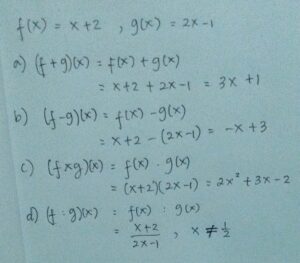 f(x) = x+2 , g(x) = 2x-1
a) (f+g)(x) = f(x) + g(x)
= x+2 + 2x-1 = 3x +1
b) (f-g)(x) = f(x) - g(x)
= x+2 - (2x-1) = -x+3
c) (f×g)(x) = f(x) . g(x)
= (x+2)(2x-1) = 2x² + 3x - 2
d) (f : g)(x) = f(x) : g(x)
= (x+2)/(2x-1) , x ≠ 1/2